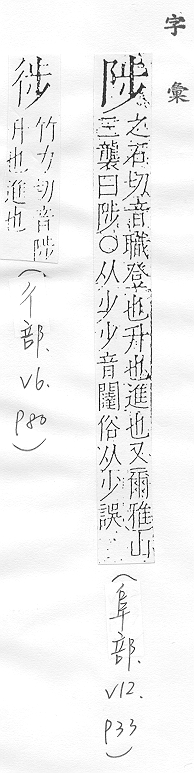 字彙
陟
之石切音職登也升也進也又爾雅山
三襲曰陟○从少少音闥俗从少誤
(阜部. v12. p33)
徏
竹力切音陟
升也進也
(彳部. v6. p80)